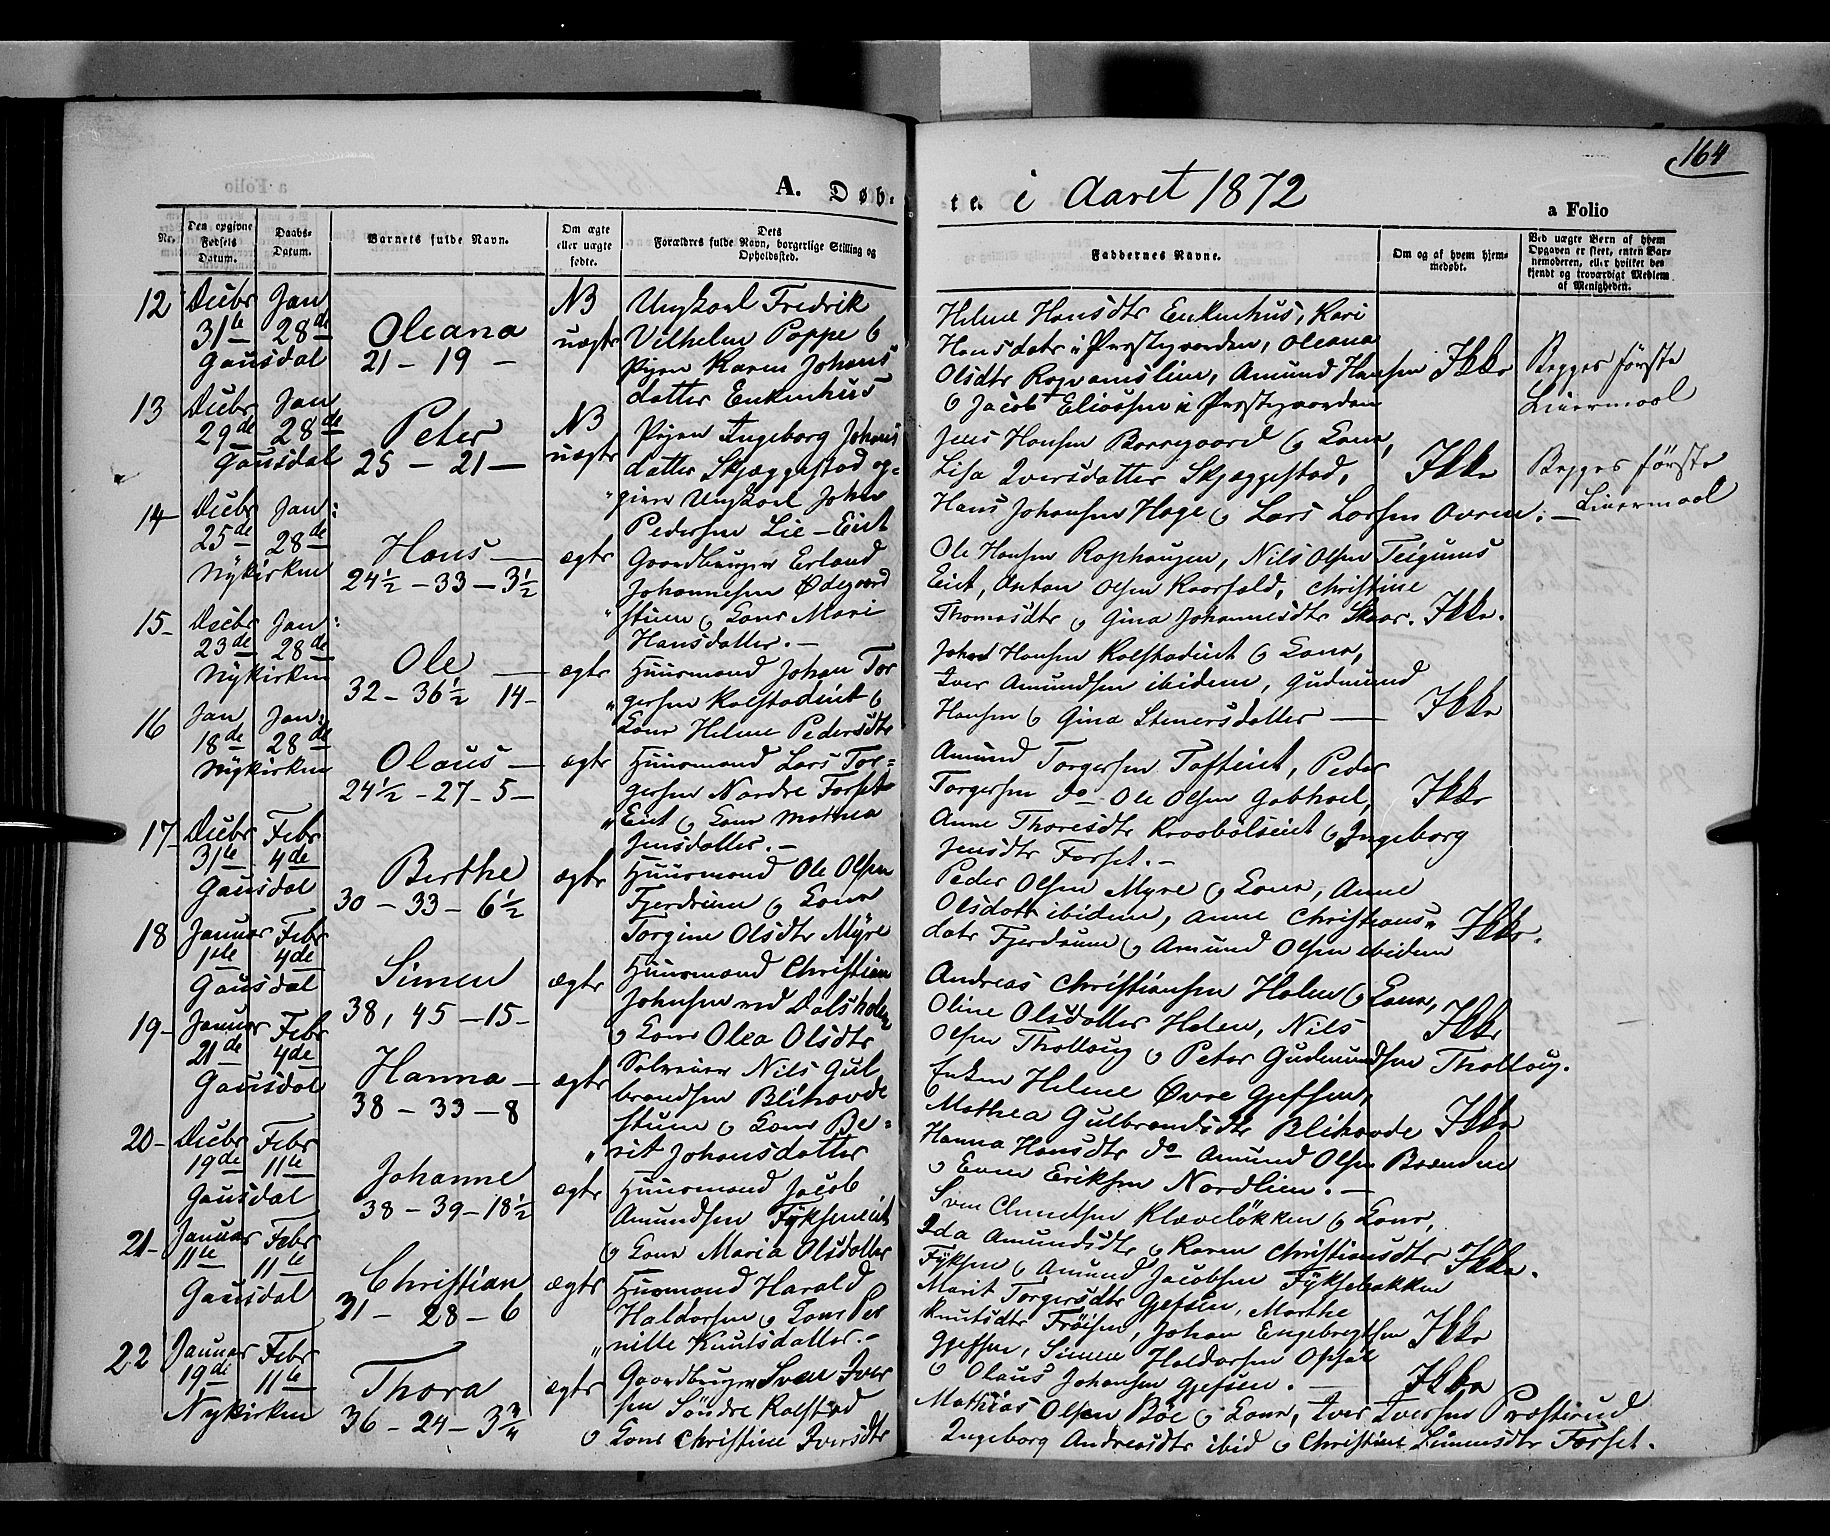 164
A. Døb-
te. i Aaret 1872
a Folio
Nr.
Den opgivne Fødsels Datum.
Daabs-Datum.
Barnets fulde Navn.
Om ægte eller uægte fødte.
Dets Forældres fulde Navn, borgerlige Stilling og Opholdssted.
Faddernes Navne.
Om og af hvem hjemmedøbt.
Ved uægte Børn af hvem Opgaven er skeet, enten Barnemoderen, eller hvilket bekjendt og troværdigt Medlem af Menigheden.
12 Decbr 31te Jan 28de Gausdal
Oleana
21 - 19 -
NB uægte
Ungkarl Fredrik
Vilhelm Poppe &
Pigen Karen Johans
datter Enkenhus
Helene Hansdtr Enkenhus, Kari
Hansdatr i Prestegaarden, Oleana
Olsdtr, Amund Hansen
& Jacob Eliassen i Prestegaarden
Ikke
Begges første
Leiermaal
13 Decbr 29de Jan 28de Gausdal
Peter
25 - 21 -
NB uægte
Pigen Ingeborg Johans
datter Skjæggestad op-
giver Ungkarl Johan
Pedersen Lie-Eiet
Jens Hansen Borregaard & Kone,
Lisa Iversdatter Skjæggestad,
Hans Johansen Hage & Lars Larsen
Ikke
Begges første
Leiermaal
14 Decbr 25de Jan: 28de Nykirken
Hans
24½ - 33 - 3½
ægte
Gaardbruger Erland
Johannesen Ødegaard
stuen & Kone Mari
Hansdatter. -
Ole Hansen Raphaugen, Nils Olsen Teigums
Eiet, Anton Olsen, Christine
Thomasdtr & Gina Johannesdtr Skaar.
Ikke.
15- Decbr 23de Jan: 28de Nykirken
Ole
32 - 36½ 14-
ægte
Huusmand Johan Tor
gersen Kalstadeiet &
Kone Helene Pedersdtr
Johan Hansen Kalstadeiet & Kone,
Iver Amundsen ibidem, Gudmund
Hansen & Gina Stenersdatter
Ikke
16 Jan 18de Jan: 28de Nykirken
Olaus
24½ - 27 - 5 -
ægte
Huusmand Lars Tor-
gersen Nordre Forset
Eiet & Kone Mathea
Jensdatter. -
Amund Torgersen Tofteiet, Peder
Torgersen do - Ole Olsen,
Anne Thoresdtr & Ingeborg
Jensdtr Forset. -
Ikke
17- Decbr 31te Febr 4de Gausdal
Berthe
30 - 33 - 6½
ægte
Huusmand Ole Olsen
Fjerdrum & Kone
Torgine Olsdtr Myre
Peder Olsen Myre & Kone, Anne
Olsdatr ibidem, Anne Christians
datr & Amund Olsen ibidem
Ikke.
18 Januar 1ste Febr 4de Gausdal
Simen
38, 45 - 15 -
ægte
Huusmand Christian
Johnsen ved Dalsholen
& Kone Olea Olsdtr
Andreas Christiansen Holen & Kone,
Oline Olsdatter Holen, Nils
Olsen Thollaug & Peter Gudmundsen Thollaug.
Ikke
19- Januar 21de Febr 4de Gausdal
Hanna
38 - 33 - 8
ægte
Selveier Nils Gul
brandsen Blihovde
stuen & Kone Be-
rit Johansdatter
Enken Helene Øvre Gjefsen,
Mathea Gulbrandsdtr Blihovde
Hanna Hansdtr do Amund Olsen Brænden
& Even Eriksen Nordlien. -
Ikke
20- Decbr 19de Febr 11te Gausdal
Johanne
38 - 39 - 18½
ægte
Huusmand Jacob
Amundsen Fykseneiet
& Kone Maria Olsdatter
Sven Kløveløkken & Kone,
Ida Amundsdtr & Karen Christiansdtr
Fyksen & Amund Jacobsen Fyksebakken
Ikke.
21- Januar 11te Febr 11te Gausdal
Christian
31 - 28 - 6
ægte
Husmand Harald
Haldorsen & Kone Per
nille Knutsdatter. -
Marit Torgersdtr Gjefsen, Marthe
Knutsdtr Frøisen, Johan Engebregtsen
Gjefsen, Simen Haldorsen Opsal
& Olaus Johansen Gjefsen. -
Ikke
22 Januar 19de Febr 11te Nykirken
Thora
36 - 24 - 3¾
ægte
Gaardbruger Sven Iver
sen Søndre Kalstad
& Kone Christine Iversdtr
Mathias Olsen Bøe & Kone, Iver Iversen Præsterud
Ingeborg Andreasdtr ibid & Christine Simensdtr Forset.
Ikke